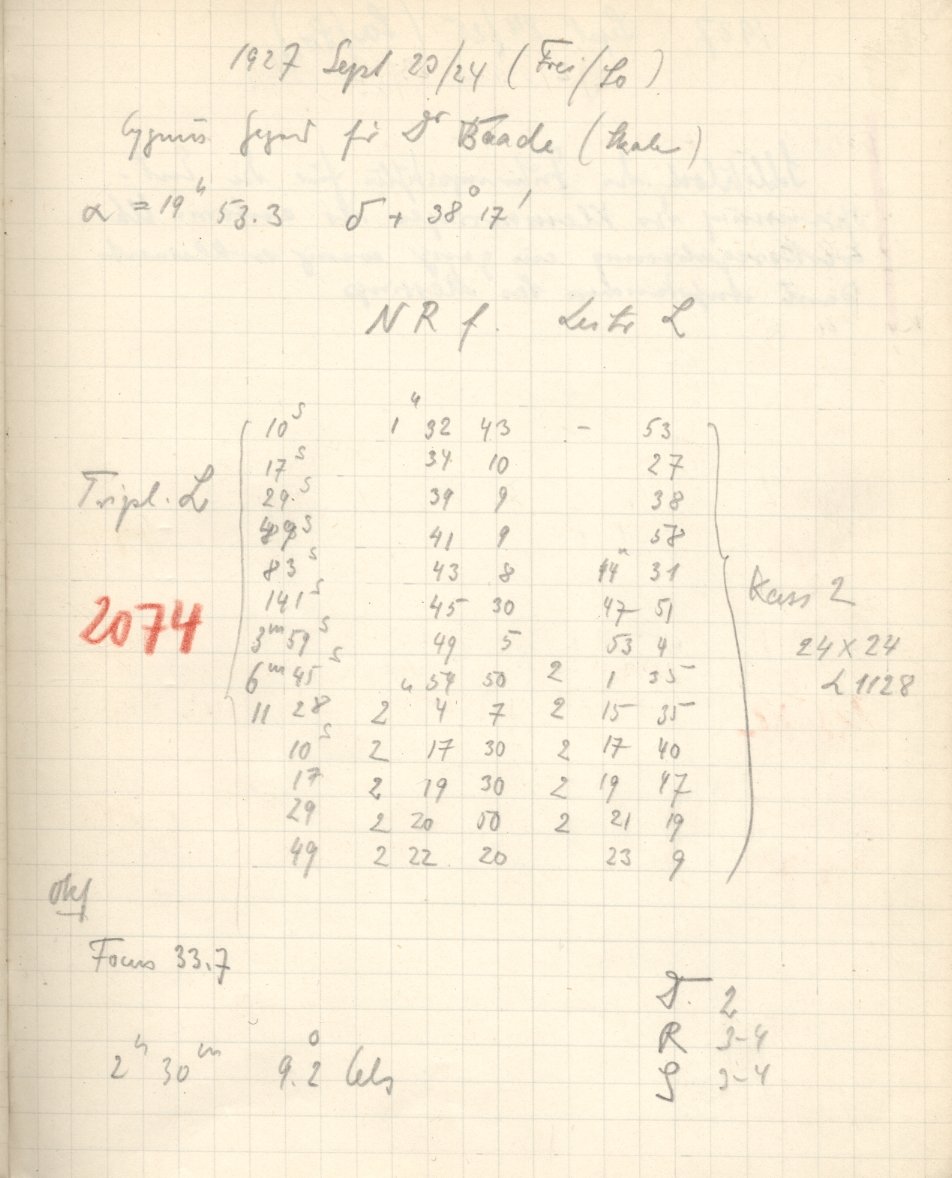 1927 Sept 23/24 (Frei/Lo)
Cygnus Gegend für Dr Baade (Skala)
α = 19h 53.3 δ + 38° 17'
N R f. L
Tripl. L
2074
10s 1h 32 43 - 53
17s 34 10 27
29s 39 9 38
49s 41 9 58
83s 43 8 44m 31
141s 45 30 47 51
3m 59s 49 5 53 4
6m 45s 54 50 2 1 35
11 28 2 4 7 2 15 35
10s 2 17 30 2 17 40
17 2 19 30 2 19 47
29 2 20 50 2 21 19
49 2 22 20 23 9
Kass 2
24 × 24
L 1128
Focus 33.7
2h 30m 9.2° Cels
D. 2
R 3-4
S 3-4